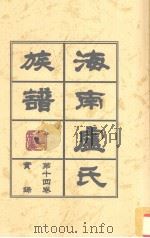 海南盧氏
族譜
第十四卷
實錄